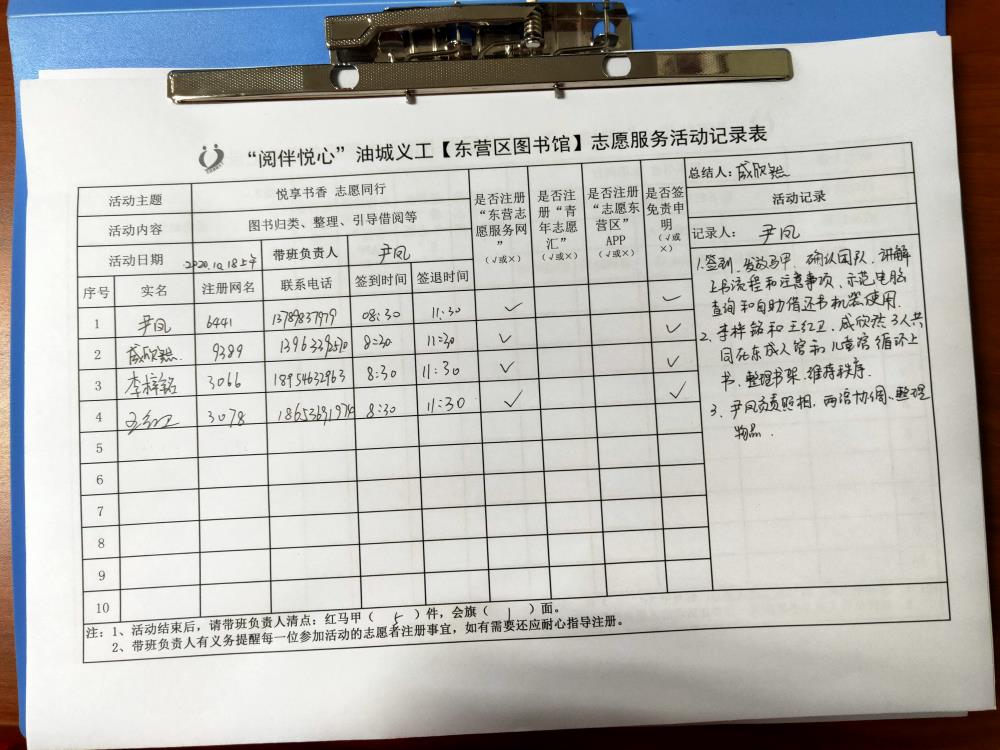 “阅伴悦心”油城义工【东营区图书馆】志愿服务活动记录表
活动主题 悦享书香 志愿同行
活动内容 图书归类、整理、引导借阅等
活动日期 2020.10.18上午 带班负责人 尹凤
序号 实名 注册网名 联系电话 签到时间 签退时间 是否注册“东营志愿服务网”（√或×） 是否注册“青年志愿汇”（√或×） 是否注册“志愿东营区”APP（√或×） 是否签免责申明（√或×）
1 尹凤 6441 13789837979 08:30 11:30 ✓ ✓
2 咸欣然 9389 8:30 11:30 ✓ ✓
3 李梓铭 3066 18954632963 8:30 11:30 ✓ ✓
4 王红卫 3078 8:30 11:30 ✓ ✓
5
6
7
8
9
10
总结人：咸欣然
活动记录
记录人：尹凤
1.签到、发放马甲、确认团队、讲解
上书流程和注意事项、示范电脑
查询和自助借还书机器使用.
2、李梓铭和王红卫、咸欣然3人共
同在东成人馆和儿童馆循环上
书、整理书架、维持秩序.
3、尹凤负责照相，两馆协调、整理
物品.
注：1、活动结束后，请带班负责人清点：红马甲（ 5 ）件，会旗（ 1 ）面。
2、带班负责人有义务提醒每一位参加活动的志愿者注册事宜，如有需要还应耐心指导注册。